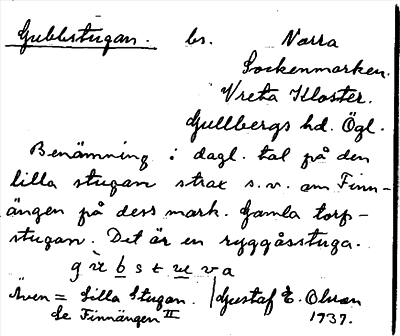 Gubbstugan. bs. Norra
Sockenmarken.
Vreta Kloster.
Gullbergs hd. Ögl.
Benämning i dagl. tal på den
lilla stugan strax s.v. om Finn-
ängen på dess mark. Gamla torp-
stugan. Det är en ryggåsstuga.
g ù b s t u v a
Även = Lilla Stugan. Gustaf E. Olsson
Se Finnängen II 1937.